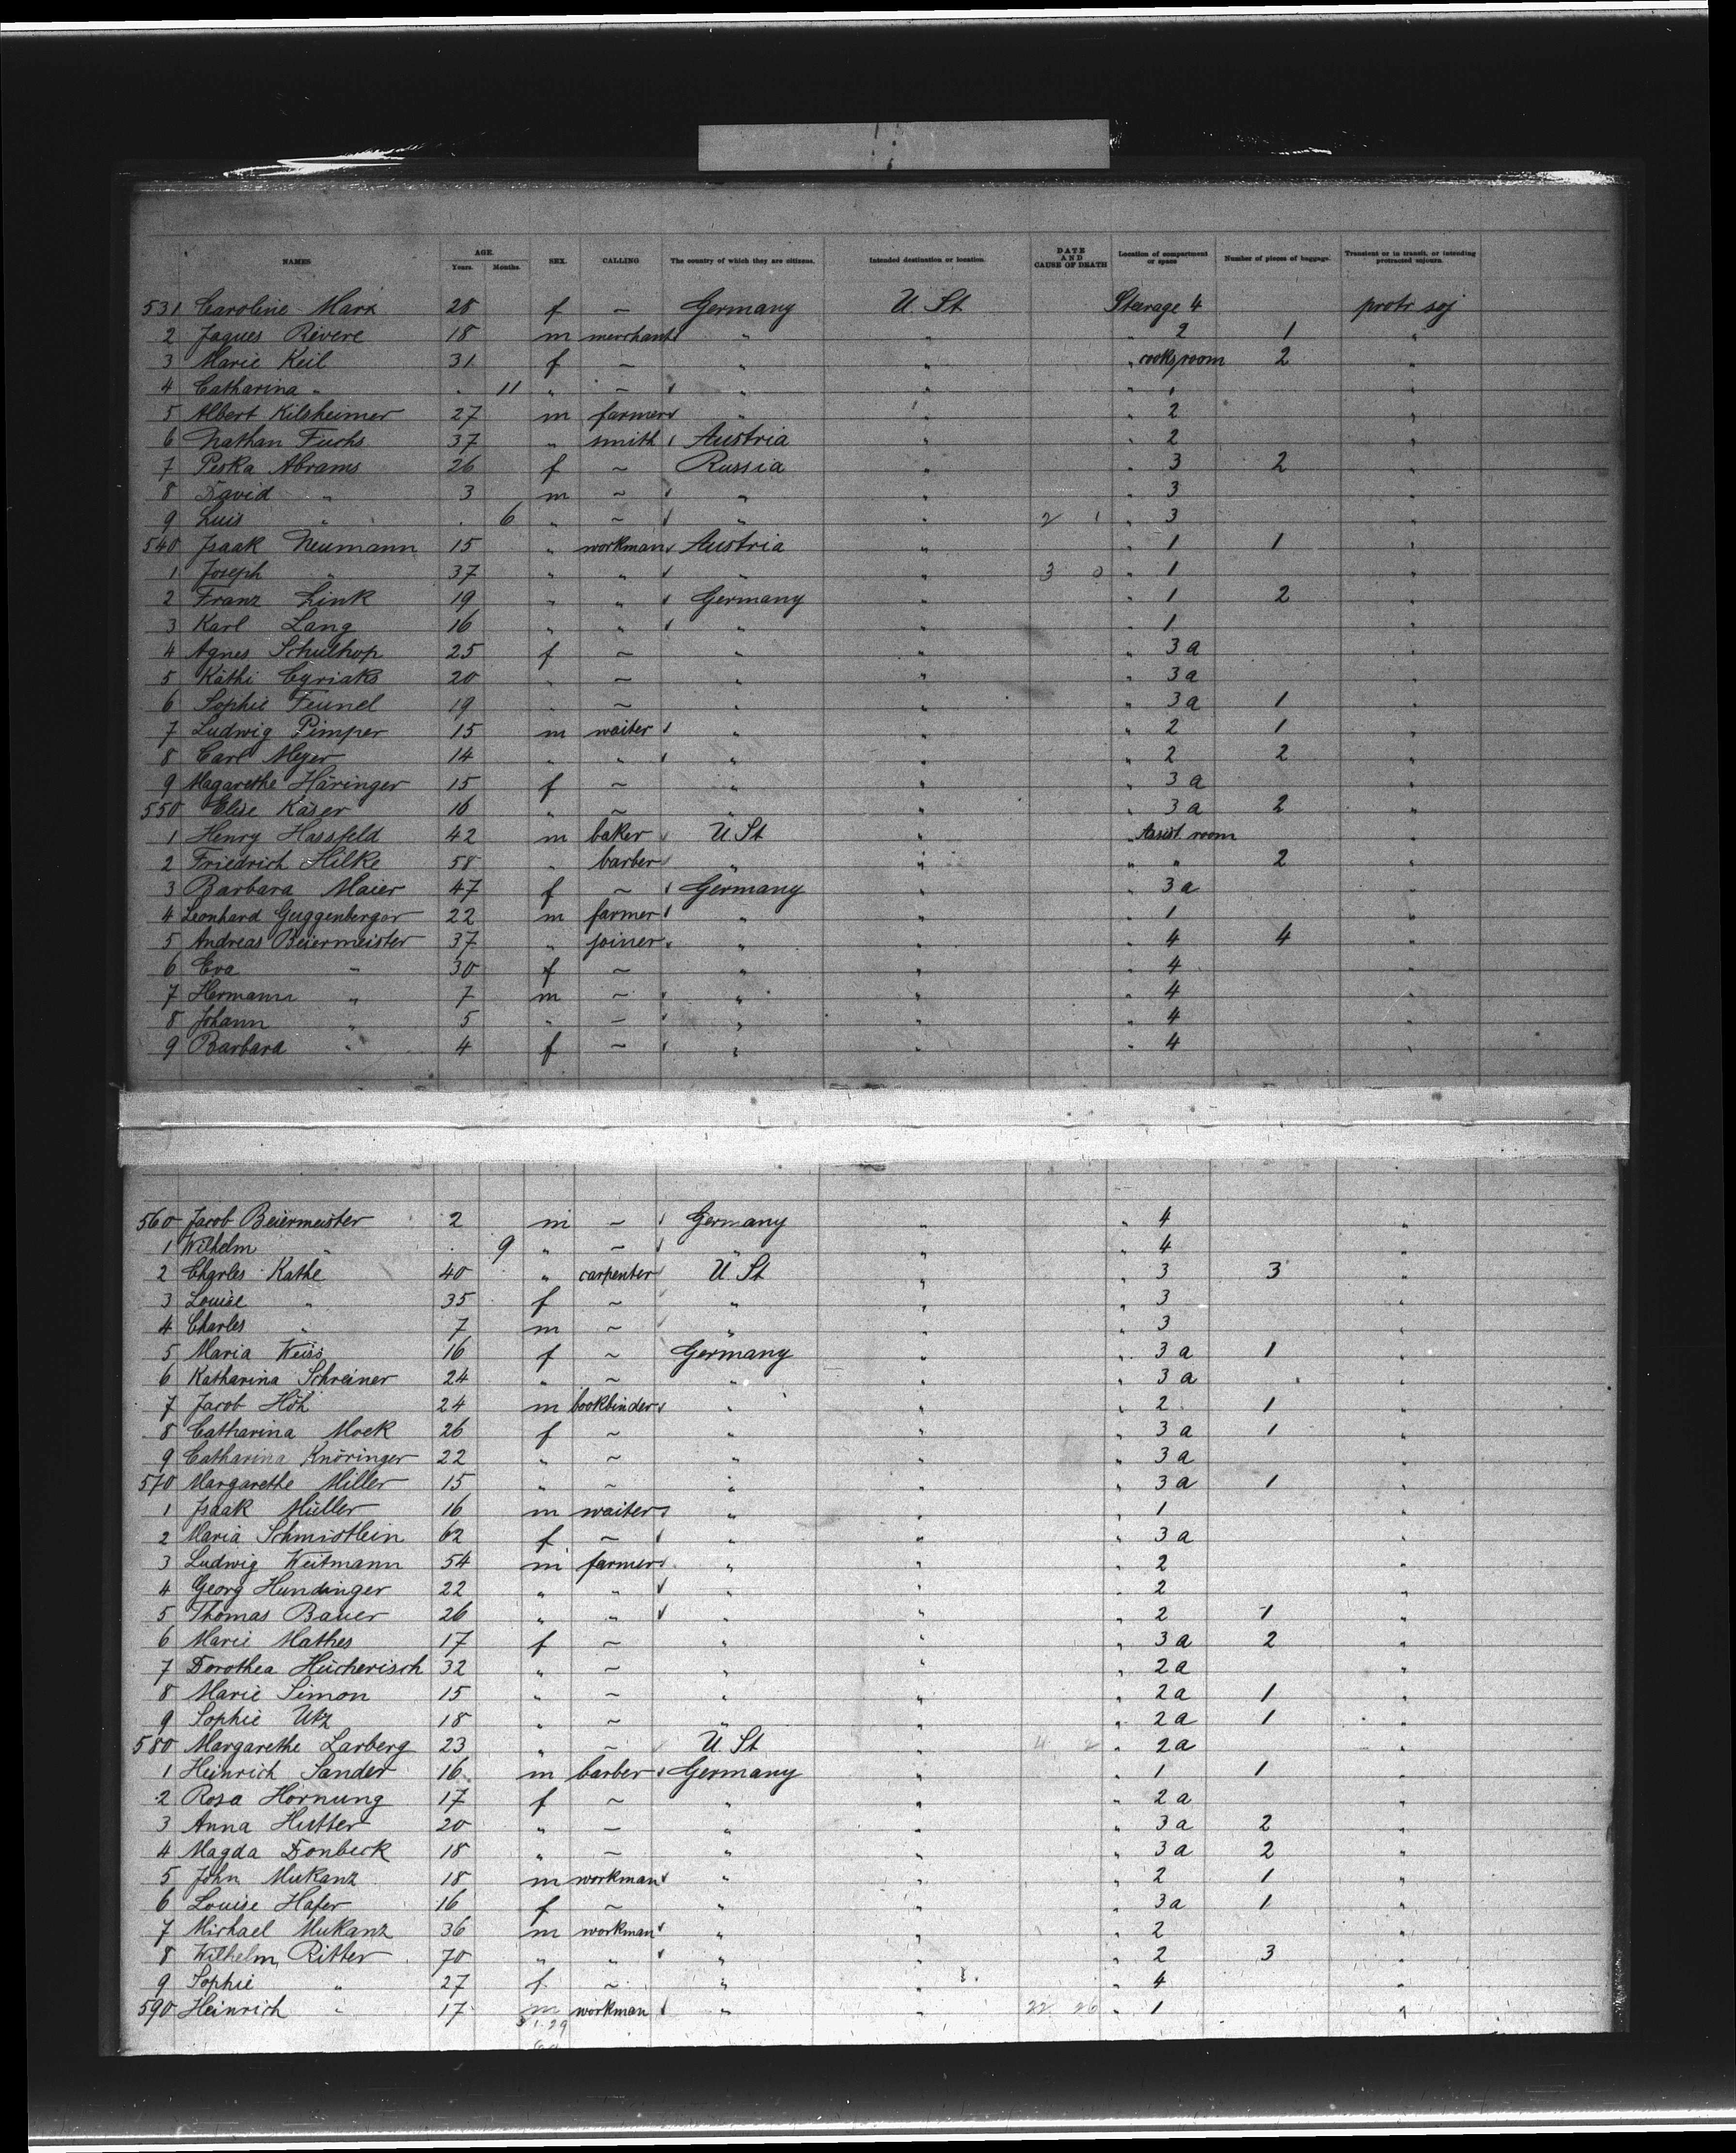 NAMES AGE. Years. Months. SEX. CALLING The country of which they are citizens. Intended destination or location. DATE AND CAUSE OF DEATH Location of compartment or space Number of pieces of baggage. Transient or in transit, or intending protracted sojourn.
531 Caroline Marx 28 f ~ Germany U. St Steerage 4 protr soj
2 Jaques Revere 18 m merchant " " " 2 1 "
3 Marie Keil 31 f ~ " " " cooks room 2 "
4 Catharina " . 11 " ~ " " " " "
5 Albert Kilsheimer 27 m farmer " " " 2 "
6 Nathan Fuchs 37 " smith Austria " " 2 "
7 Peska Abrams 26 f ~ Russia " " 3 2 "
8 David " 3 m ~ " " " 3 "
9 Luis " . 6 " ~ " " 2 1 " 3 "
540 Isaak Neumann 15 " workman Austria " " 1 1 "
1 Joseph " 37 " " " " 3 0 " 1 "
2 Franz Link 19 " " Germany " " 1 2 "
3 Karl Lang 16 " " " " " 1 "
4 Agnes Schulhop 25 f ~ " " " 3 a "
5 Käthi Cyriaks 20 " ~ " " " 3 a "
6 Sophie Feunel 19 " ~ " " " 3 a 1 "
7 Ludwig Pimper 15 m waiter " " " 2 1 "
8 Carl Meyer 14 " " " " " 2 2 "
9 Magarethe Häringer 15 f ~ " " " 3 a "
550 Elise Käser 16 " ~ " " " 3 a 2 "
1 Henry Hassfeld 42 m baker U St " " Assist. room "
2 Friedrich Hilke 58 " barber " " " " 2 "
3 Barbara Maier 47 f ~ Germany " " 3 a "
4 Leonhard Guggenberger 22 m farmer " " " 1 "
5 Andreas Beiermeister 37 " joiner " " " 4 4 "
6 Eva " 30 f ~ " " " 4 "
7 Hermann " 7 m ~ " " " 4 "
8 Johann " 5 " ~ " " " 4 "
9 Barbara " 4 f ~ " " " 4 "
560 Jacob Beiermeister 2 m ~ Germany " " 4 "
1 Wilhelm " . 9 " ~ " " " 4 "
2 Charles Kathe 40 " carpenter U. St " " 3 3 "
3 Louise " 35 f ~ " " " 3 "
4 Charles " 7 m ~ " " " 3 "
5 Maria Weiss 16 f ~ Germany " " 3 a 1 "
6 Katharina Schreiner 24 " ~ " " " 3 a "
7 Jacob Höh 24 m bookbinder " " " 2 1 "
8 Catharina Mock 26 f ~ " " " 3 a 1 "
9 Catharina Knöringer 22 " ~ " " " 3 a "
570 Margarethe Miller 15 " ~ " " " 3 a 1 "
1 Isaak Müller 16 m waiter " " " 1 "
2 Maria Schmidtlein 62 f ~ " " " 3 a "
3 Ludwig Weitmann 54 m farmer " " " 2 "
4 Georg Hundinger 22 " " " " " 2 "
5 Thomas Bauer 26 " " " " " 2 1 "
6 Marie Mathes 17 f ~ " " " 3 a 2 "
7 Dorothea Hücherisch 32 " ~ " " " 2 a "
8 Marie Simon 15 " ~ " " " 2 a 1 "
9 Sophie Utz 18 " ~ " " " 2 a 1 "
580 Margarethe Larberg 23 " ~ U. St " 4 2 " 2 a "
1 Heinrich Sander 16 m barber Germany " " 1 1 "
2 Rosa Hornung 17 f ~ " " " 2 a "
3 Anna Hutter 20 " ~ " " " 3 a 2 "
4 Magda Donbeck 18 " ~ " " " 3 a 2 "
5 John Mukanz 18 m workman " " " 2 1 "
6 Louise Hafer 16 f ~ " " " 3 a 1 "
7 Michael Mukanz 36 m workman " " " 2 "
8 Wilhelm Ritter 70 " " " " " 2 3 "
9 Sophie " 27 f ~ " " " 4 "
590 Heinrich " 17 m workman " " 22 26 " 1 "